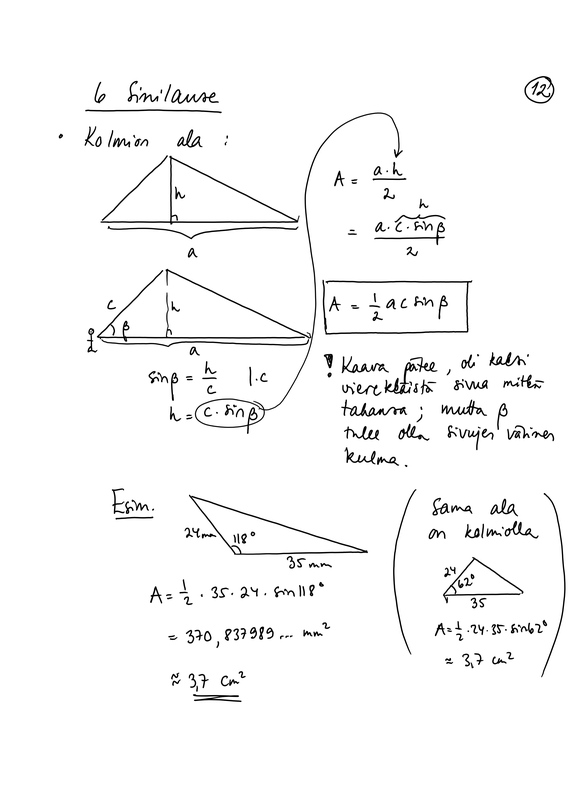 6 Sinilause
12
• Kolmion ala :
h
a
A = a·h / 2
h
= a·c·sinβ / 2
c
h
β
a
A = 1/2 a c sinβ
sinβ = h/c |·c
h = c·sinβ
! Kaava pätee, oli kaksi
vierekkäistä sivua mitkä
tahansa; mutta β
tulee olla sivujen välinen
kulma.
Esim.
24 mm
118°
35 mm
A = 1/2 · 35 · 24 · sin 118°
= 370,837989... mm²
≈ 3,7 cm²
(Sama ala
on kolmiolla
24
62°
35
A = 1/2 · 24 · 35 · sin 62°
≈ 3,7 cm²)